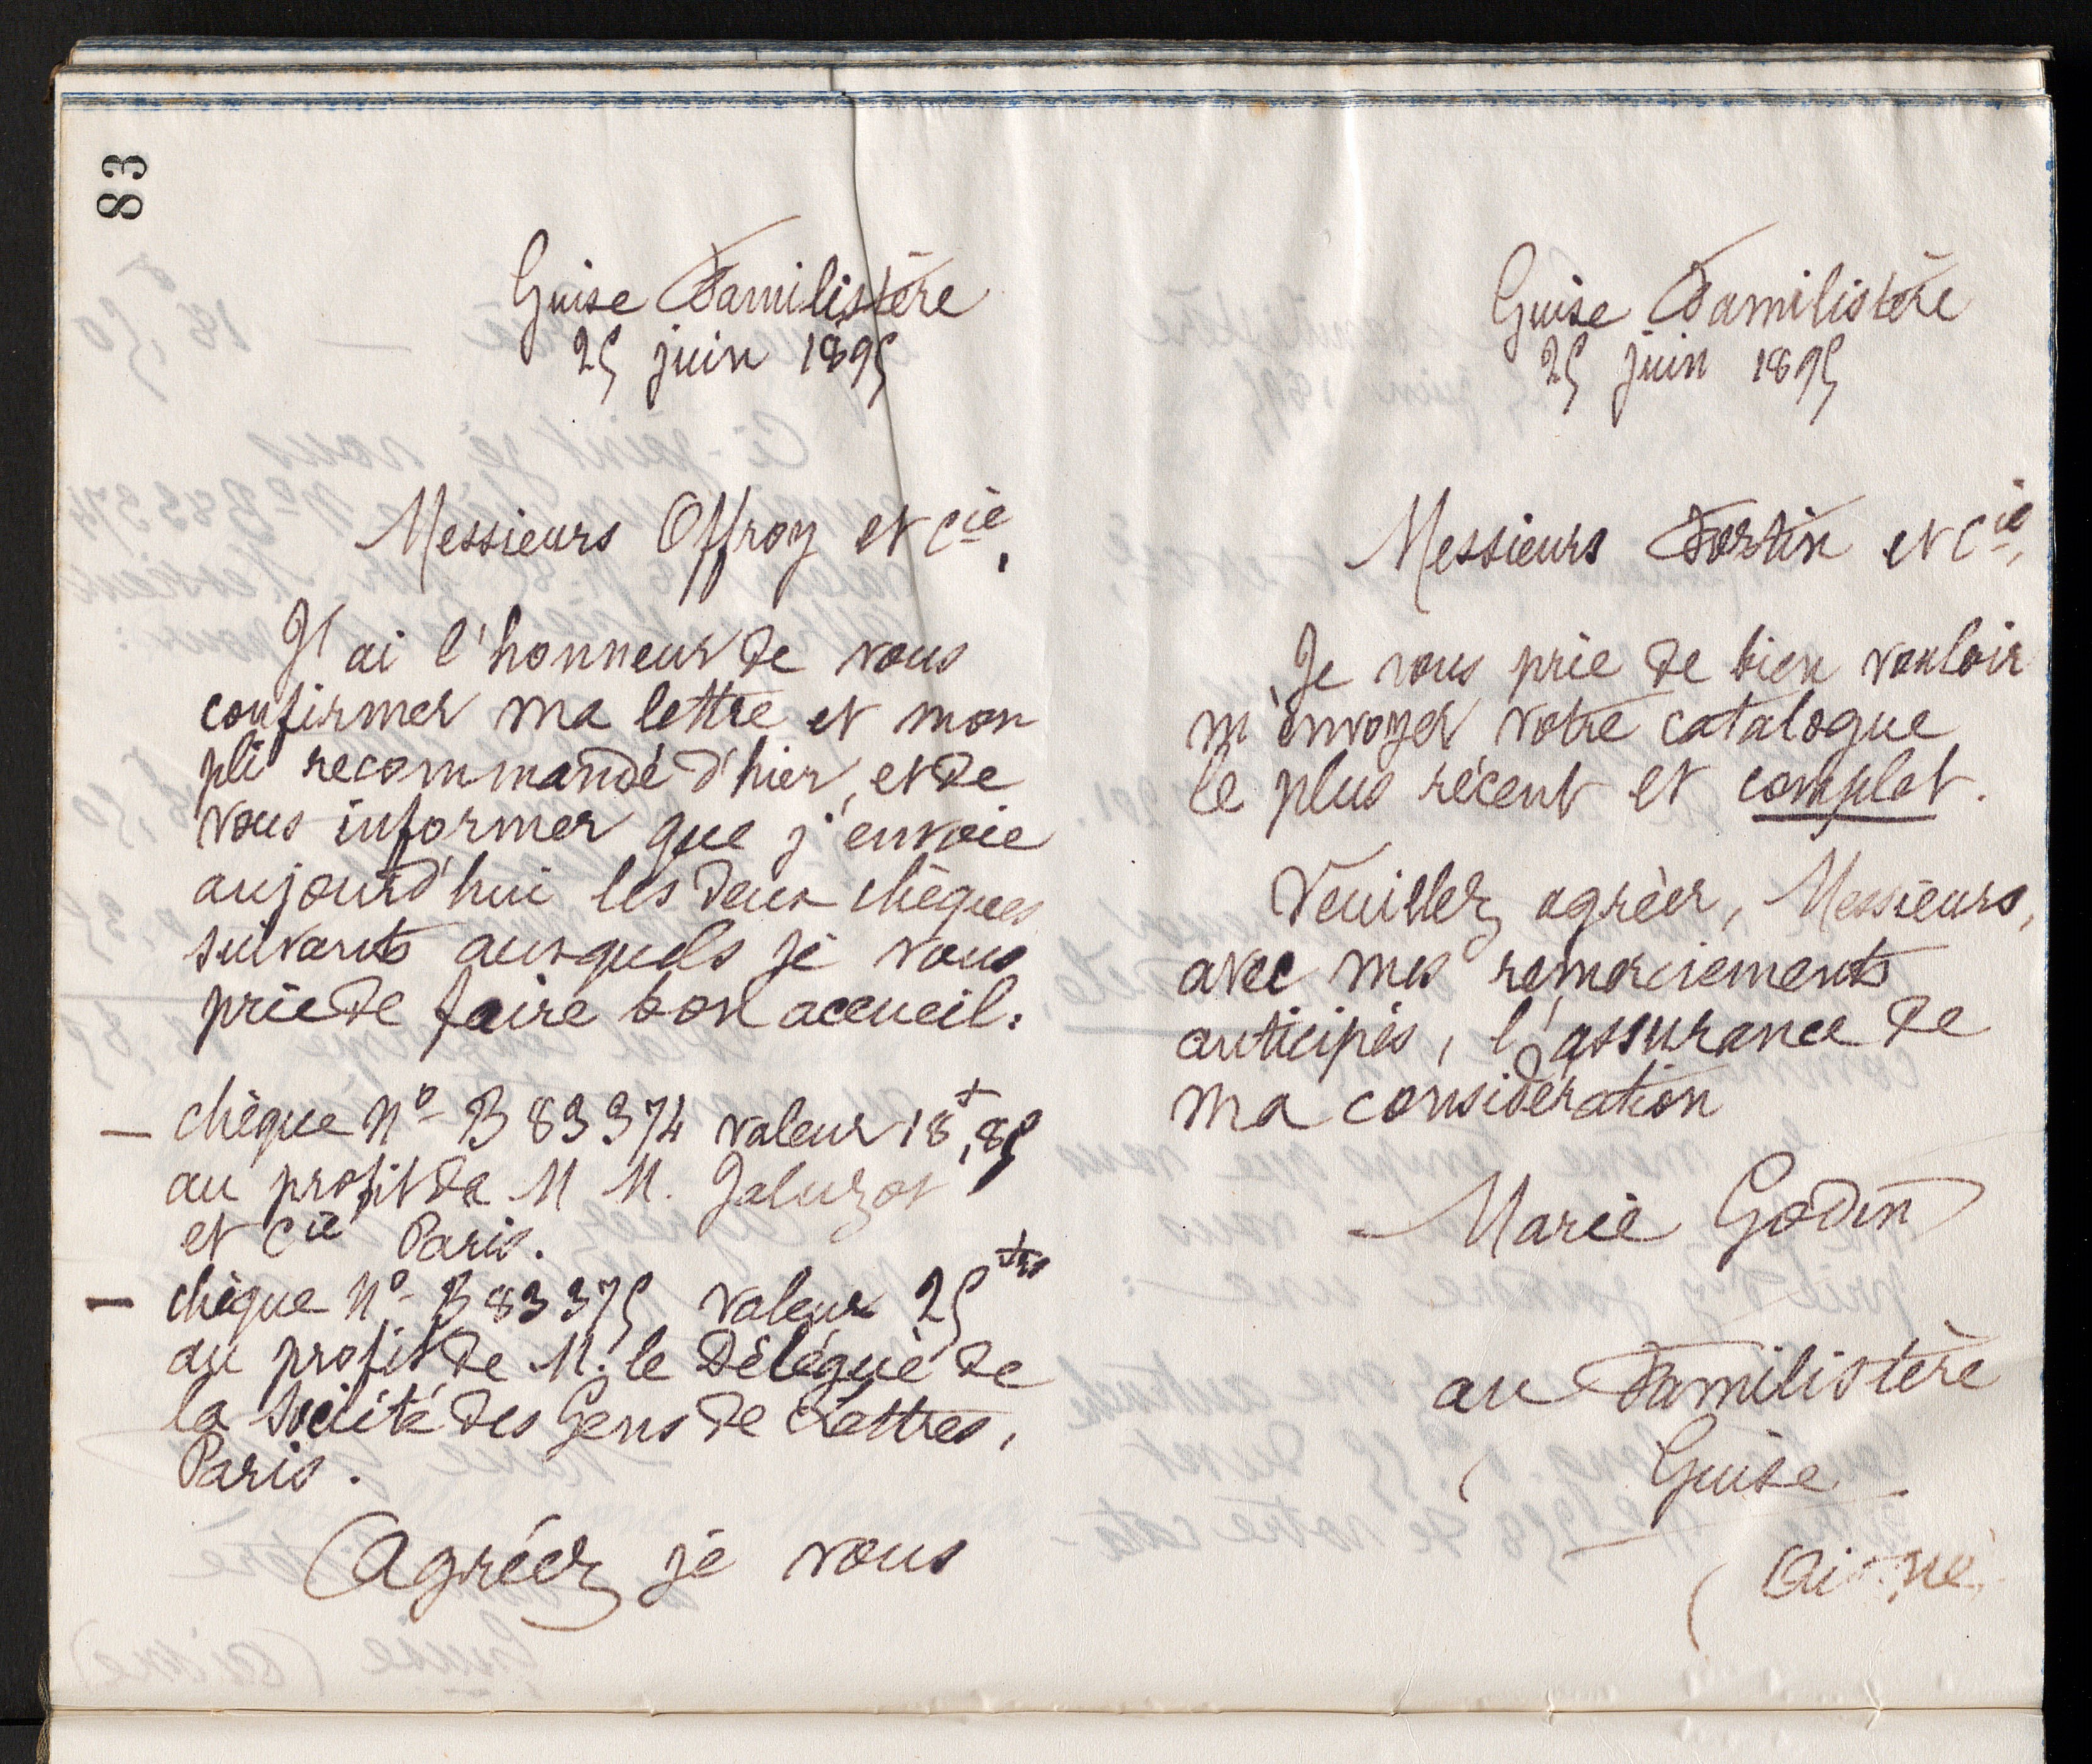 83
Guise Familistère
25 juin 1895
Messieurs Offroy et Cie,
J'ai l'honneur de vous
confirmer ma lettre et mon
pli recommandé d'hier, et de
vous informer que j'envoie
aujourd'hui les deux chèques
suivants auxquels je vous
prie de faire bon accueil:
— chèque No B 83374 valeur 18f,85
au profit de M M. Jaluzot
et Cie Paris.
— chèque No B 83375 valeur 25frs
au profit de M. le Délégué de
la Société des Gens de Lettres,
Paris.
Agréez je vous
Guise Familistère
25 juin 1895
Messieurs Fortin et Cie,
Je vous prie de bien vouloir
m'envoyer votre catalogue
le plus récent et complet.
Veuillez agréer, Messieurs,
avec mes remerciements
anticipés, l'assurance de
ma considération
Marie Godin
au Familistère
Guise
(Aisne)